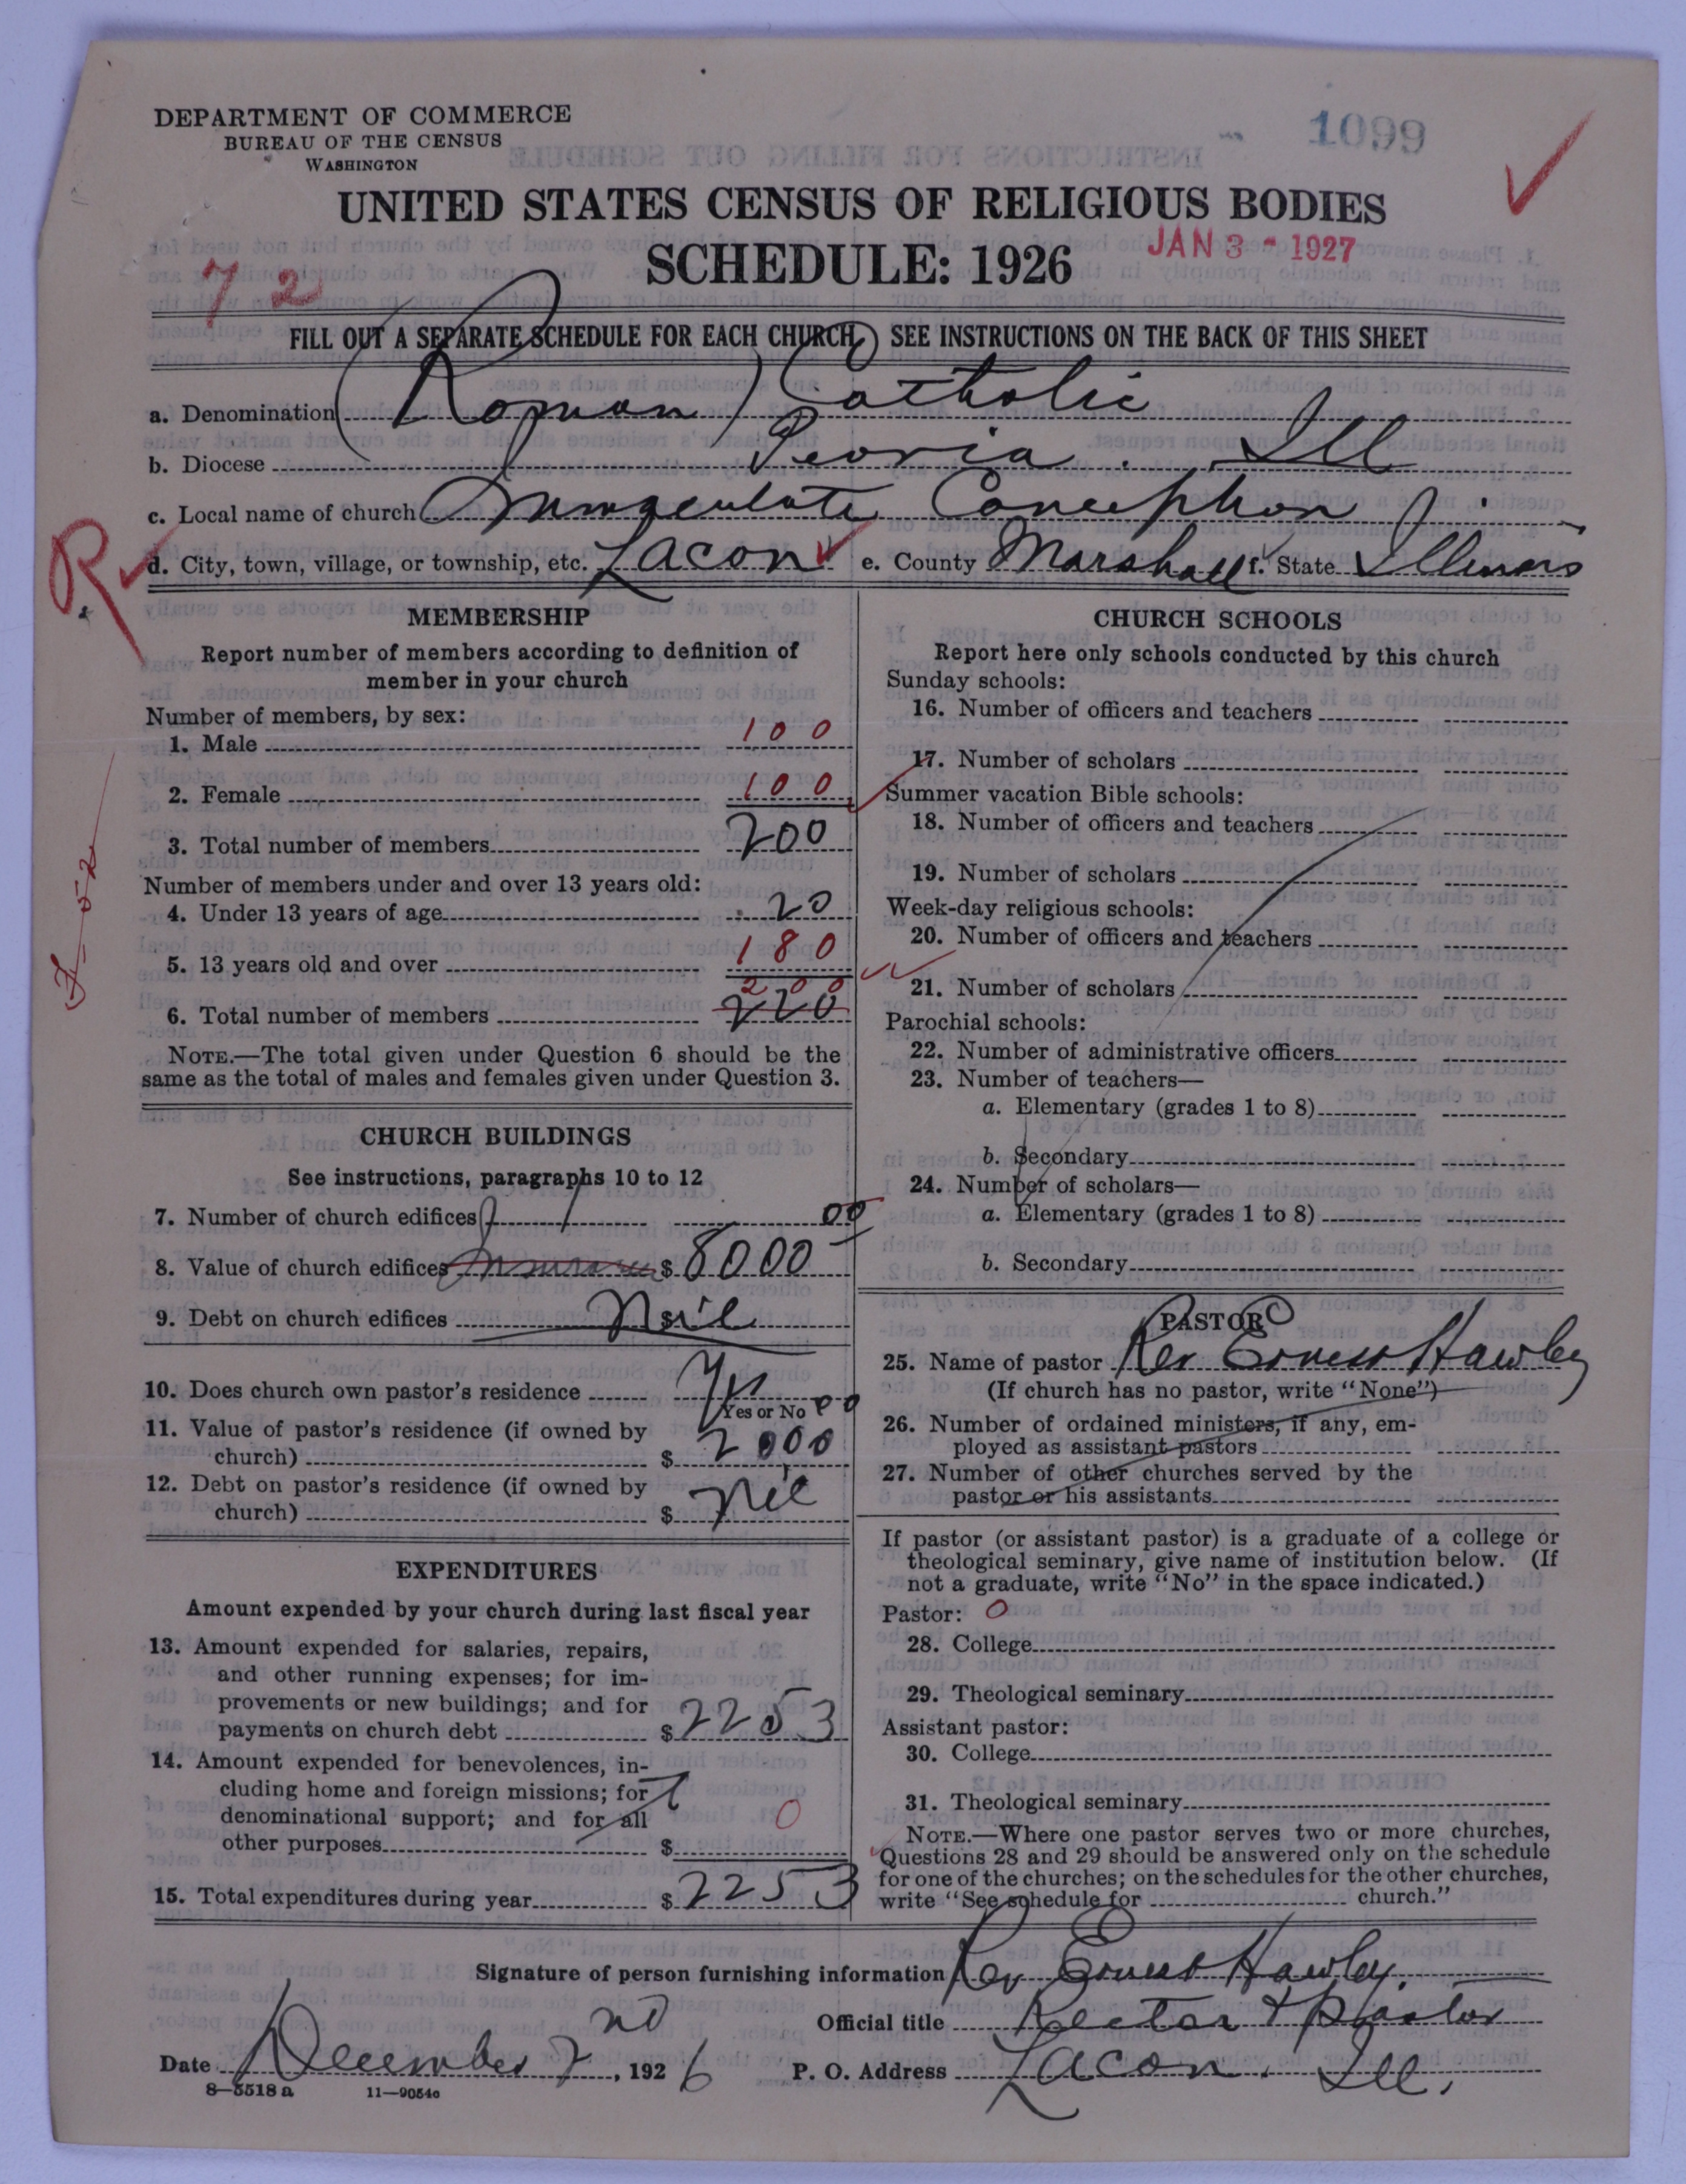 DEPARTMENT OF COMMERCE
BUREAU OF THE CENSUS
WASHINGTON
1099
UNITED STATES CENSUS OF RELIGIOUS BODIES
SCHEDULE: 1926
JAN 3 - 1927
7 2
FILL OUT A SEPARATE SCHEDULE FOR EACH CHURCH, SEE INSTRUCTIONS ON THE BACK OF THIS SHEET
a. Denomination (Roman) Catholic
b. Diocese Peoria. Ill
c. Local name of church Immaculate Conception
R
d. City, town, village, or township, etc. Lacon e. County Marshall f. State Illinois
MEMBERSHIP
Report number of members according to definition of
member in your church
Number of members, by sex:
1. Male 100
2. Female 100
3. Total number of members 200
Number of members under and over 13 years old:
4. Under 13 years of age 20
5. 13 years old and over 180
6. Total number of members 220 200
NOTE.—The total given under Question 6 should be the
same as the total of males and females given under Question 3.
CHURCH BUILDINGS
See instructions, paragraphs 10 to 12
7. Number of church edifices 1
8. Value of church edifices Insurance $ 8000 00
9. Debt on church edifices Nil
10. Does church own pastor's residence Yes
Yes or No
11. Value of pastor's residence (if owned by
church) $ 2000 00
12. Debt on pastor's residence (if owned by
church) $ Nil
EXPENDITURES
Amount expended by your church during last fiscal year
13. Amount expended for salaries, repairs,
and other running expenses; for im-
provements or new buildings; and for
payments on church debt $ 2253
14. Amount expended for benevolences, in-
cluding home and foreign missions; for
denominational support; and for all
other purposes $ 0
15. Total expenditures during year $ 2253
CHURCH SCHOOLS
Report here only schools conducted by this church
Sunday schools:
16. Number of officers and teachers
17. Number of scholars
Summer vacation Bible schools:
18. Number of officers and teachers
19. Number of scholars
Week-day religious schools:
20. Number of officers and teachers
21. Number of scholars
Parochial schools:
22. Number of administrative officers
23. Number of teachers—
a. Elementary (grades 1 to 8)
b. Secondary
24. Number of scholars—
a. Elementary (grades 1 to 8)
b. Secondary
PASTOR
25. Name of pastor Rev Ernest Hawley
(If church has no pastor, write "None")
26. Number of ordained ministers, if any, em-
ployed as assistant pastors
27. Number of other churches served by the
pastor or his assistants
If pastor (or assistant pastor) is a graduate of a college or
theological seminary, give name of institution below. (If
not a graduate, write "No" in the space indicated.)
Pastor: 0
28. College
29. Theological seminary
Assistant pastor:
30. College
31. Theological seminary
NOTE.—Where one pastor serves two or more churches,
Questions 28 and 29 should be answered only on the schedule
for one of the churches; on the schedules for the other churches,
write "See schedule for church."
Signature of person furnishing information Rev Ernest Hawley.
Official title Rector & Pastor
Date December 2nd, 1926 P. O. Address Lacon. Ill.
8—5518 a 11—9054c